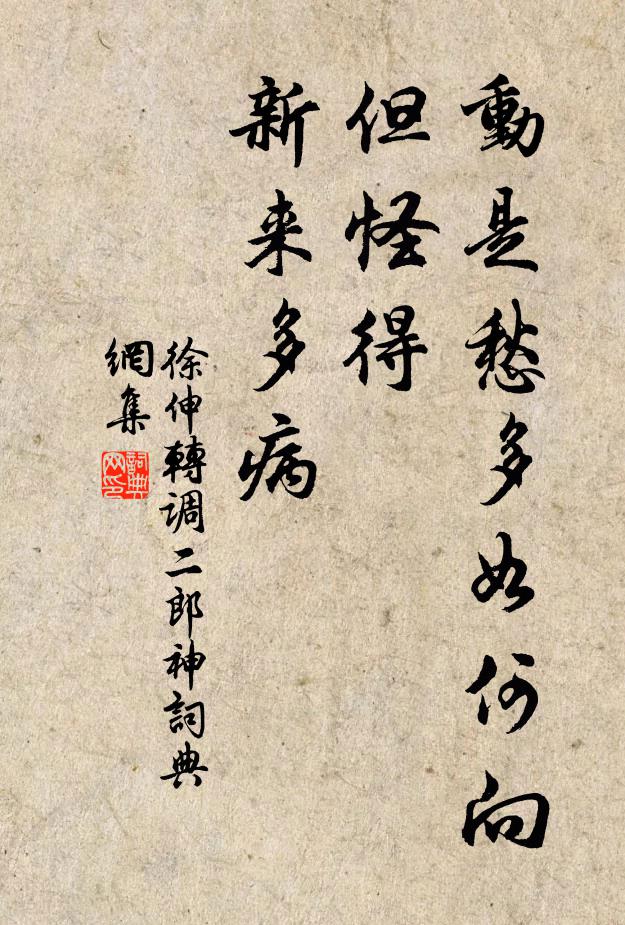 動是愁多如何向
但怪得
新来多病
徐伸轉调二郎神詞典
網集
詞典
网印